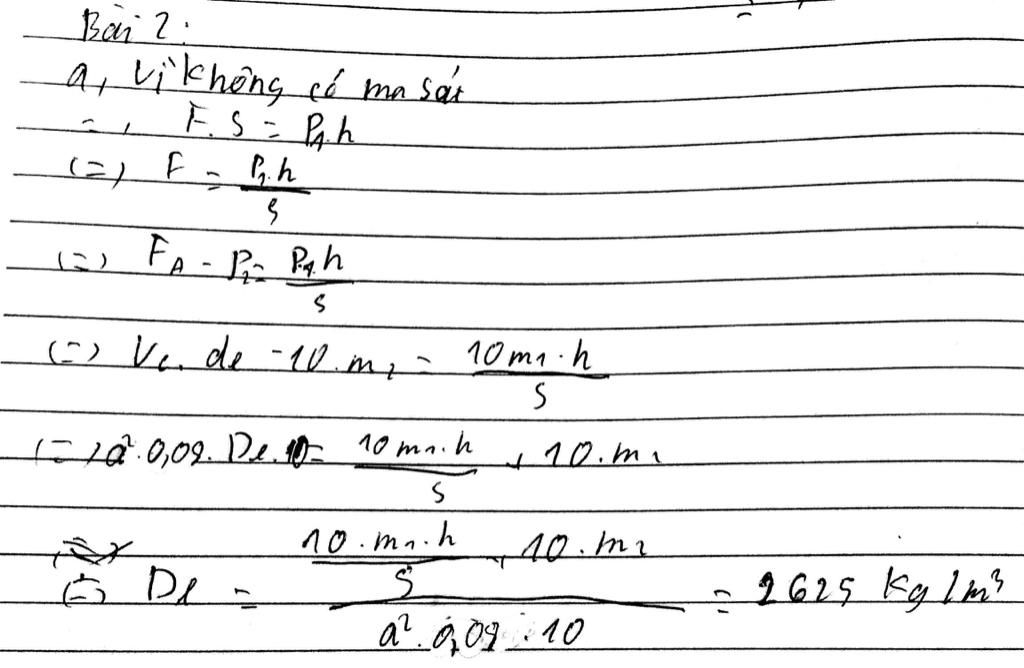 Bài 2:
a, Vì không có ma sát
=, F. S = P1.h
(=) F = P1.h / S
(=) FA - P2 = P1.h / S
(=) Vc. de - 10.m2 = 10m1.h / S
(=) a².0,09. De.10 = 10m1.h / S + 10.m2
(=) Dl = 10.m1.h / S + 10.m2 / a².0,09.10 = 2625 Kg/m³